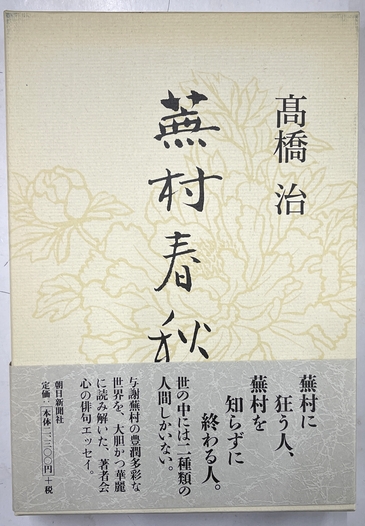 髙橋 治
蕪村春秋
蕪村に
狂う人、
蕪村を
知らずに
終わる人。
世の中には二種類の
人間しかいない。
与謝蕪村の豊潤多彩な
世界を、大胆かつ華麗
に読み解いた、著者会
心の俳句エッセイ。
朝日新聞社
定価:本体二三〇〇円+税